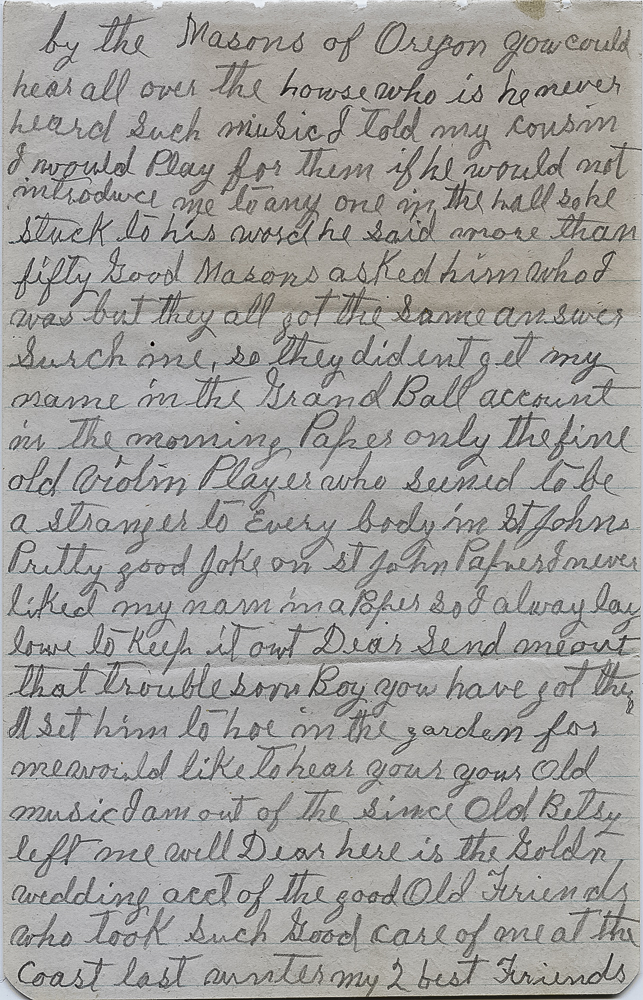 by the Masons of Oregon you could
hear all over the howse who is he never
heard Such music I told my cousin
I would Play for them if he would not
introduce me to any one in the hall so he
stuck to his word he said more than
fifty Good Masons asked him who I
was but they all got the Same answer
Surch me, so they did ent get my
name in the Grand Ball account
in the morning Paper only the fine
old Violin Player who seemed to be
a stranger to Every body in St Johns
Pretty good Joke on St John Papers I never
liked my nam in a Paper So I alway lay
lowe to Keep it out Dear Send me out
that troublesom Boy you have got ther
Il Set him to hoe in the garden for
me would like to hear your your Old
music I am out of the since Old Betsy
left me will Dear here is the Goldn
wedding acct of the good Old Friends
who took Such Good care of me at the
Coast last winter my 2 best Friends